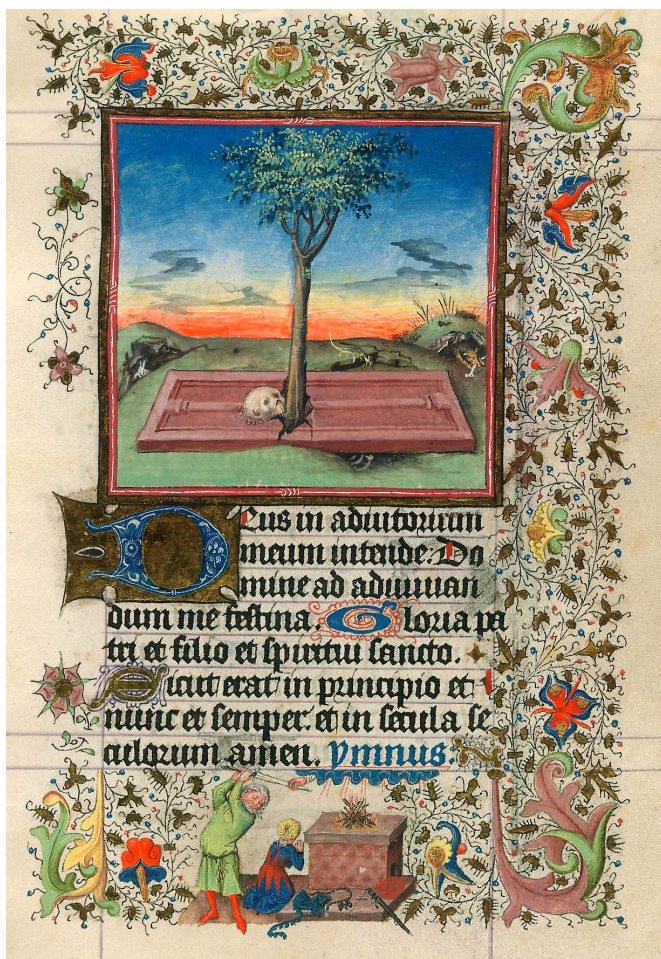 Deus in adiutorium
meum intende. Do
mine ad adiuuan
dum me festina. Gloria pa
tri et filio et spiritui sancto.
Sicut erat in principio et
nunc et semper. et in secula se
culorum amen. ymnus.